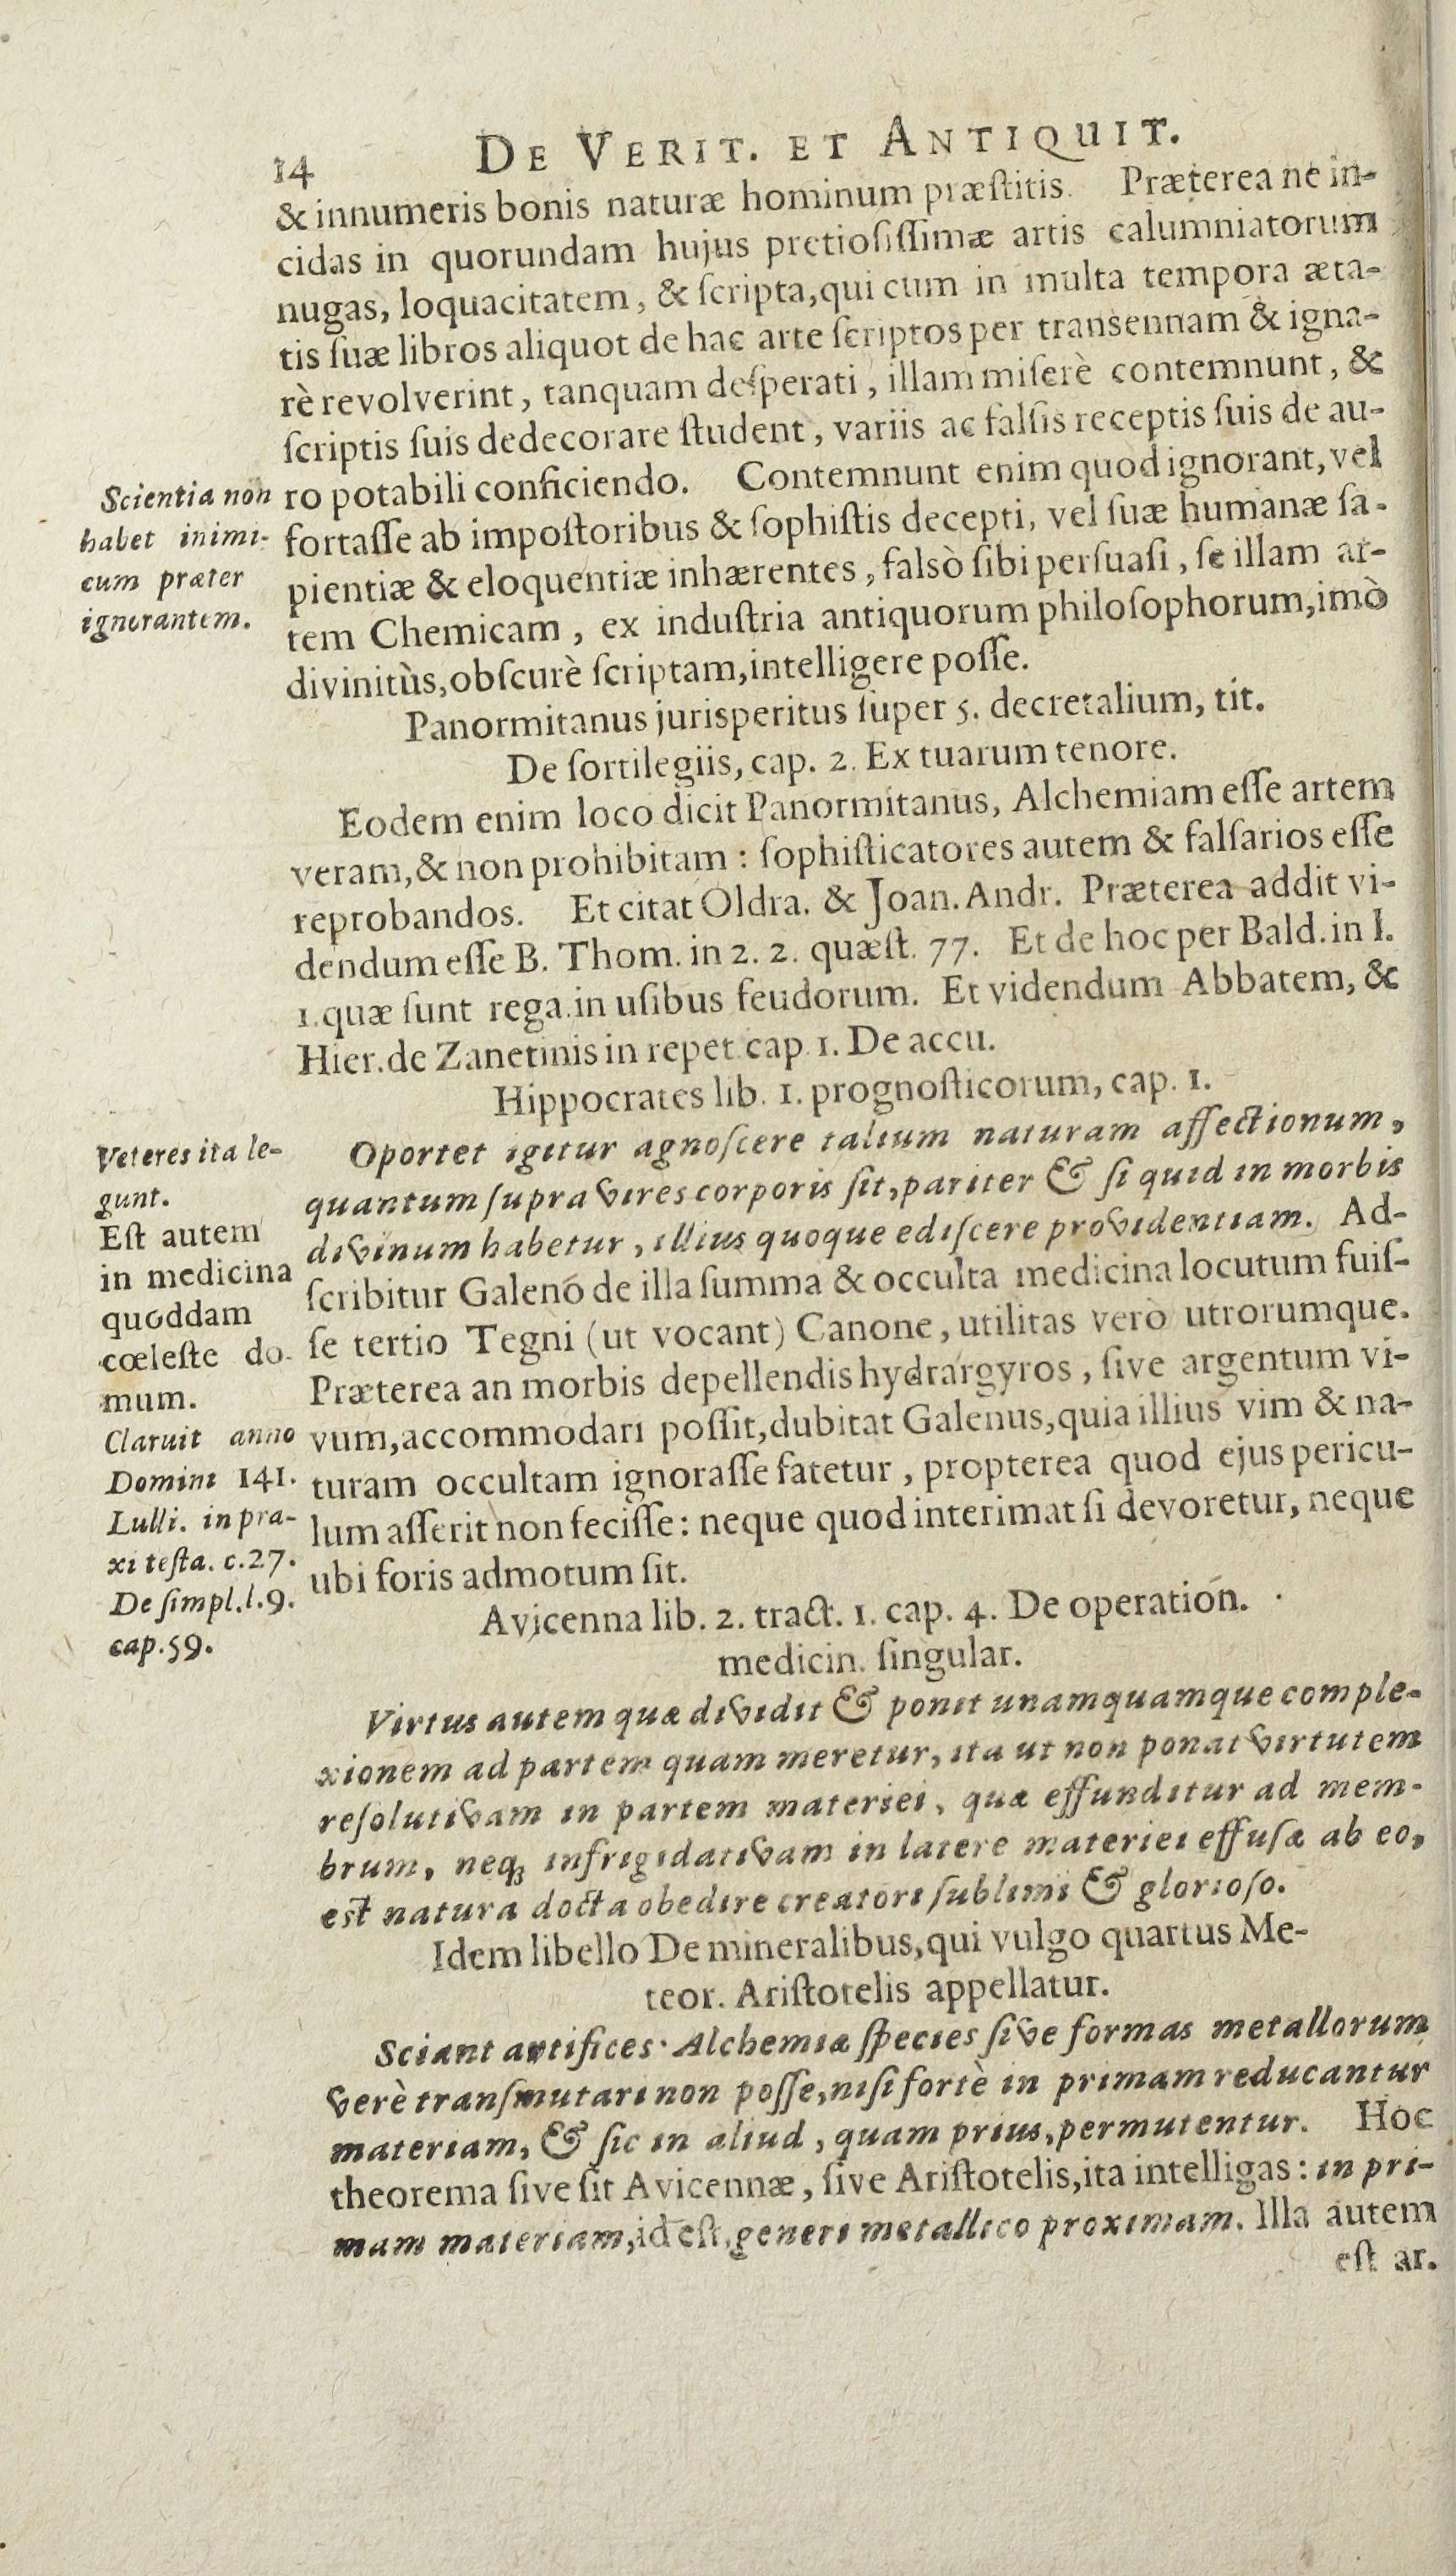 14 DE VERIT. ET ANTIQUIT.
& innumeris bonis naturæ hominum præſtitis. Præterea ne in-
cidas in quorundam hujus pretioſiſſimæ artis calumniatorum
nugas, loquacitatem, & ſcripta, qui cum in multa tempora æta-
tis ſuæ libros aliquot de hac arte ſcriptos per transennam & igna-
rè revolverint, tanquam deſperati, illam miſerè contemnunt, &
ſcriptis ſuis dedecorare ſtudent, variis ac falſis receptis ſuis de au-
ro potabili conficiendo. Contemnunt enim quod ignorant, vel
fortaſſe ab impoſtoribus & ſophiſtis decepti, vel ſuæ humanæ ſa-
pientiæ & eloquentiæ inhærentes, falsò ſibi perſuaſi, ſe illam ar-
tem Chemicam, ex induſtria antiquorum philoſophorum, imò
divinitùs, obſcurè ſcriptam, intelligere poſſe.
Scientia non
habet inimi-
cum præter
ignorantem.
Panormitanus jurisperitus ſuper 5. decretalium, tit.
De ſortilegiis, cap. 2. Ex tuarum tenore.
Eodem enim loco dicit Panormitanus, Alchemiam eſſe artem
veram, & non prohibitam : ſophiſticatores autem & falſarios eſſe
reprobandos. Et citat Oldra. & Joan. Andr. Præterea addit vi-
dendum eſſe B. Thom. in 2. 2. quæſt. 77. Et de hoc per Bald. in l.
1. quæ ſunt rega. in uſibus feudorum. Et videndum Abbatem, &
Hier. de Zanetinis in repet. cap. 1. De accu.
Hippocrates lib. 1. prognoſticorum, cap. 1.
Oportet igitur agnoſcere talium naturam affectionum,
quantum ſupra vires corporis ſit, pariter & ſi quid in morbis
divinum habetur, illius quoque ediſcere providentiam. Ad-
ſcribitur Galeno de illa ſumma & occulta medicina locutum fuiſ-
ſe tertio Tegni (ut vocant) Canone, utilitas verò utrorumque.
Præterea an morbis depellendis hydrargyros, ſive argentum vi-
vum, accommodari poſſit, dubitat Galenus, quia illius vim & na-
turam occultam ignoraſſe fatetur, propterea quod ejus pericu-
lum aſſerit non feciſſe: neque quod interimat ſi devoretur, neque
ubi foris admotum ſit.
Veteres ita le-
gunt.
Eſt autem
in medicina
quoddam
cœleſte do-
mum.
Claruit anno
Domini 141.
Lulli. in pra-
xi teſta. c. 27.
De ſimpl. l. 9.
cap. 59.
Avicenna lib. 2. tract. 1. cap. 4. De operation.
medicin. ſingular.
Virtus autem quæ dividit & ponit unamquamque comple-
xionem ad partem quam meretur, ita ut non ponat virtutem
reſolutivam in partem materiei, quæ effunditur ad mem-
brum, neq; infrigidativam in latere materiei effuſæ ab eo,
eſt natura docta obedire creatori ſublimi & glorioſo.
Idem libello De mineralibus, qui vulgo quartus Me-
teor. Ariſtotelis appellatur.
Sciant artifices Alchemiæ ſpecies ſive formas metallorum
verè tranſmutari non poſſe, niſi fortè in primam reducantur
materiam, & ſic in aliud, quam prius, permutentur. Hoc
theorema ſive ſit Avicennæ, ſive Ariſtotelis, ita intelligas: in pri-
mam materiam, id eſt, generi metallico proximam. Illa autem
eſt ar.